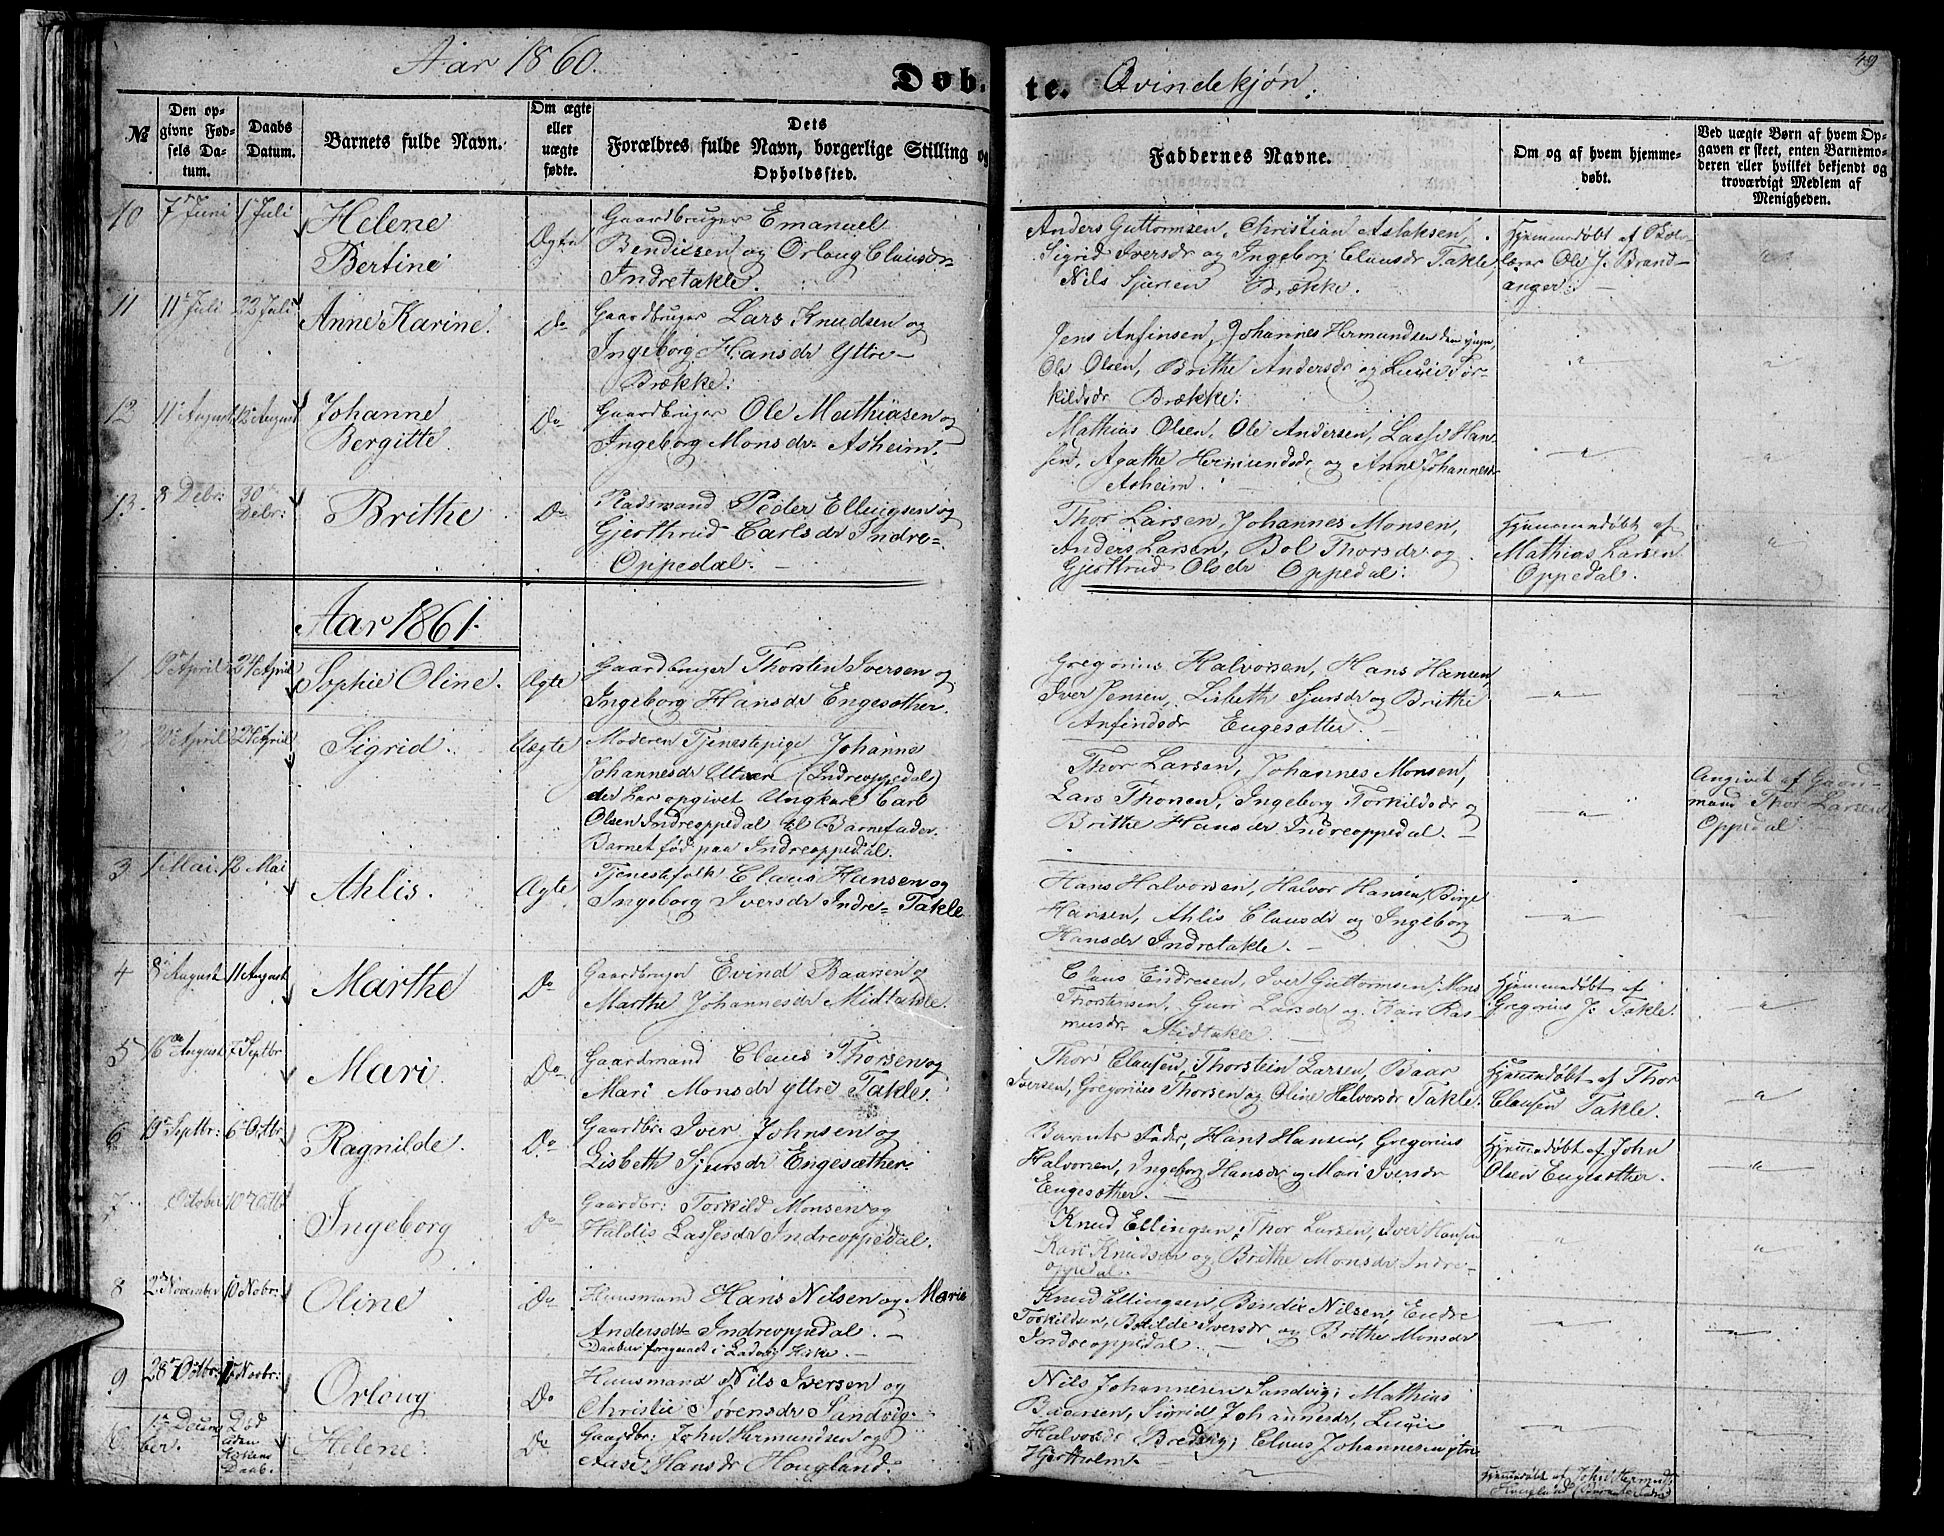 49
Aar 1860.
Døb-
te.
Qvindekjøn.
№
Den op-
givne Fød-
sels Da-
tum.
Daabs
Datum.
Barnets fulde Navn.
Om ægte
eller
uægte
fødte.
Dets
Forældres fulde Navn, borgerlige Stilling og
Opholdssted.
Faddernes Navne.
Om og af hvem hjemme-
døbt.
Ved uægte Børn af hvem Op-
gaven er skeet, enten Barnemo-
deren eller hvilket bekjendt og
troværdigt Medlem af
Menigheden.
10
7 Juni
1 Juli
Helene
Bertine
Ægte
Gaardbruger Emanuel
Bendixen og Orloug Clausdr
Indretakle.
Anders Guttormsen, Christian Aslaksen,
Sigrid Iversdr og Ingeborg Clausdr Takle,
Nils Sjursen Brække.
Hjemmedøbt af Skole-
lærer Ole J. Brand-
anger.
11
11 Juli
22 Juli
Anne Karine.
Do
Gaardbruger Lars Knudsen og
Ingeborg Hansdr Yttre-
Brække.
Jens Anfinsen, Johannes Hermundsen den yngr,
Ole Olsen, Brithe Andersdr og Lucie Tor-
kildsdr Brække.
"
"
12
11 August
12 August
Johanne
Bergitte
Do
Gaardbruger Ole Mathiasen og
Ingeborg Monsdr Asheim.
Mathias Olsen, Ole Andersen, Lasse Han-
sen, Agathe Hermundsdr og Anne Johannesdr
Asheim.
"
"
13.
8 Debr:
30
Debr:
Brithe
Do
Pladsmand Peder Ellingsen og
Gjerthrud Carlsdr Indre-
Oppedal.
Thor Larsen, Johannes Monsen,
Anders Larsen, Bol Thorsdr og
Gjerthrud Olsdr Oppedal.
Hjemmedøbt af
Mathias Larsen
Oppedal.
"
Aar 1861.
1
April
24 April
Sophie Oline.
Ægte
Gaardbruger Thorsten Iversen og
Ingeborg Hansdr Engesæther.
Gregorius Halvorsen, Hans Hansen,
Iver Jensen, Lisbeth Sjursdr og Brithe
Anfindsdr Engesætter.
"
"
2
April
24 April
Sigrid.
Uægte
Moderen Tjenestepige Johanne
Johannesdr Utvær (Indreoppedal)
der har opgivet Ungkarl Carl
Olsen Indreoppedal til Barnefader.
Barnet fød paa Indreoppedal.
Thor Larsen, Johannes Monsen,
Lars Thorsen, Ingeborg Torkildsdr og
Brithe Hansdr Indreoppedal.
"
Angivet af Gaard-
mand Thor Larsen
Oppedal
3
1 Mai.
12 Mai
Ahlis.
Ægte
Tjenestefolk Claus Hansen og
Ingeborg Iversdr Indre-Takle
Hans Halvorsen, Halvor Hansen, Birge
Hansen, Ahlis Clausdr og Ingeborg
Hansdr Indretakle.
"
"
4
8 August
11 August
Marthe
Do
Gaardbruger Evind Baarsen og
Marthe Johannesdr Midtakle.
Claus Endresen, Iver Guttormsen, Mons
Thorstensen, Guri Larsdr og Kari Ras-
musdr Midtakle.
Hjemmedøbt af
Gregorius J. Takle.
"
5
16 August
7 Septbr
Mari.
Do
Gaardmand Claus Thorsen og
Mari Monsdr yttre Takle.
Thor Clausen, Thorstein Larsen, Baar
Iversen, Gregorius Thorsen og Oline Halvorsdr Takle.
Hjemmedøbt af Thor
Clausen Takle.
"
6
19 Septbr:
6 Octbr
Ragnilde.
Do
Gaardbr: Iver Johnsen og
Lisbeth Sjursdr Engesæther.
Barnets Fader, Hans Hansen, Gregorius
Halvorsen, Ingeborg Hansdr og Mari Iversdr
Engesæther.
Hjemmedøbt af John
Olsen Engesæther.
"
7
October
Octbr
Ingeborg
Do
Gaardbr: Torkild Monsen og
Haldis Lassesdr Indreoppedal.
Knud Ellingsen, Thor Larsen, Iver Hansen
Kari Knudsdr og Brithe Monsdr Indre-
oppedal.
"
"
8
2 November
10 Nobr:
Oline
Do
Huusmand Hans Nilsen og Marie
Andersdr Indreoppedal.
Daaben foregaaet i Ladvig Kirke.
Knud Ellingsen, Bendix Nilsen, Endre
Torkildsen, Botilde Iversdr og Brithe Monsdr
Indreoppedal.
"
"
9
28 Octbr:
Novbr:
Orloug
Do
Huusmand Nils Iversen og
Christie Sørensdr Sandvig.
Nils Johannesen Sandvig, Mathias
Baarsen, Sigrid Johannesdr, Lucie
Halvorsdr Bredvig, Claus Johannesen ytre
Hjertholm.
"
"
10
1 Decem-
ber.
Død
uden
Daab.
Helene.
Do
Gaardbr: John Hermundsen og
Aase Hansdr Hougland.
"
Hjemmedøbt af John Hermunds.
Hougland (Barnets Fader)